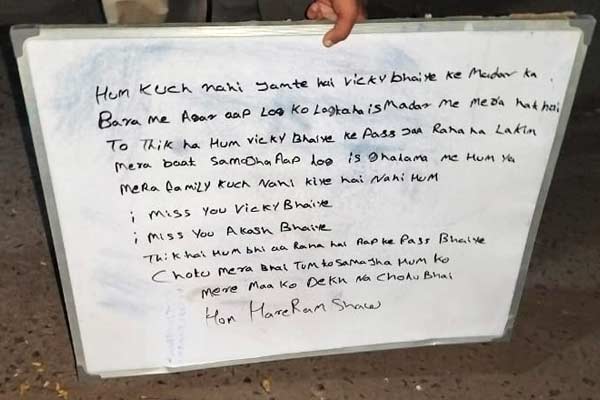 Hum Kuch nahi Jamte hai Vicky Bhaiye ke Madar ka
Bara me Agar aap Log Ko Lagtaha is Madar me mera hak hai
To Thik ha Hum Vicky Bhaiye ke Pass Jaa Raha ha Lakin
mera baat Samagha Aap Log is Ghatama me Hum ya
mera family Kuch Nahi kiye hai Nahi Hum
i miss You Vicky Bhaiye
i miss You Akash Bhaiye
Thik hai Hum bhi aa Raha hai Aap ke Pass Bhaiye
Chotu Mera Bhai Tum to Samagha Hum Ko
Mere Maa Ko Dekh Na Chotu Bhai
Hom HareRam Shaw